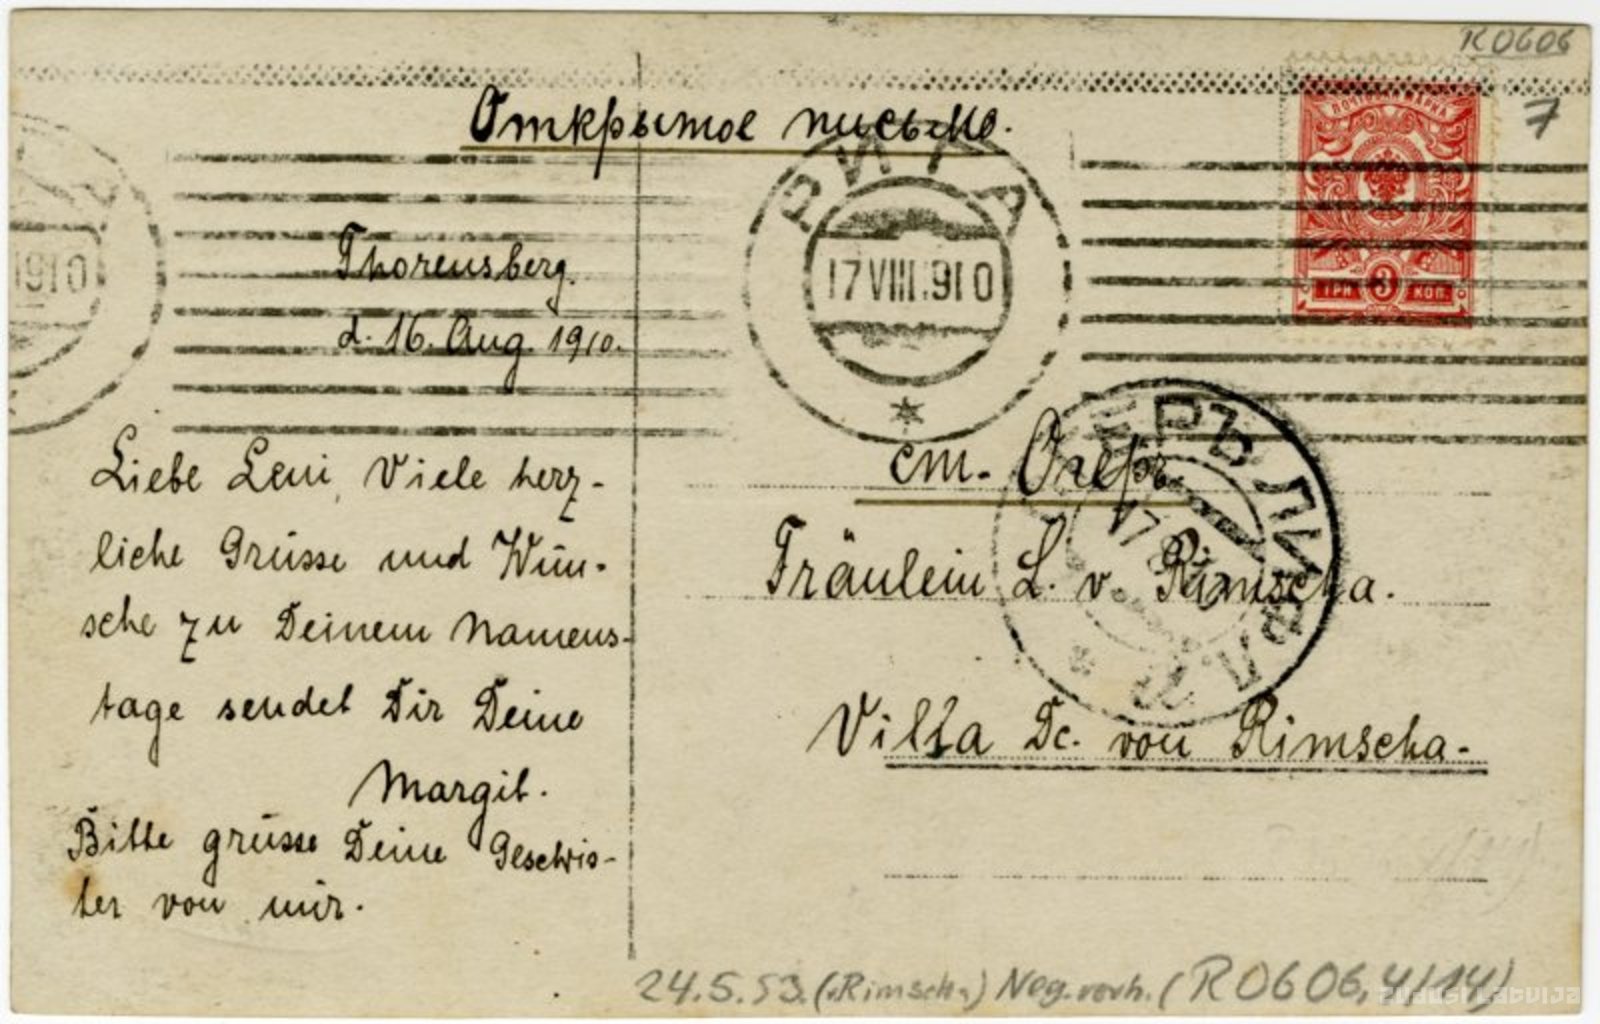 R0606
7
Открытое письмо.
ПОЧТОВАЯ МАРКА
3
ТРИ КОП.
РИГА
17 VIII.910
1910
Thorensberg.
d. 16. Aug. 1910.
Liebe Leni, Viele herz-
liche Grüsse und Wün-
sche zu Deinem Namens-
tage sendet Dir Deine
Margit.
Bitte grüsse Deine Geschwis-
ter von mir.
ст. Огеръ.
Fräulein L. v. Rimscha.
Villa Dr. von Rimscha.
24.5.53. (v. Rimscha) Neg. vorh. (R0606, 4/14)
zudusilatvija